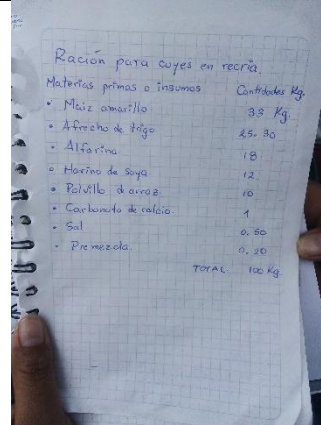 Ración para cuyes en recria.
Materias primas o insumos Cantidades Kg.
• Maiz amarillo 33 Kg.
• Afrecho de trigo 25.30
• Alfarina 18
• Harina de soya 12
• Polvillo d arroz 10
• Carbonato de calcio 1
• Sal 0.50
• Premezcla 0.20
TOTAL 100 Kg